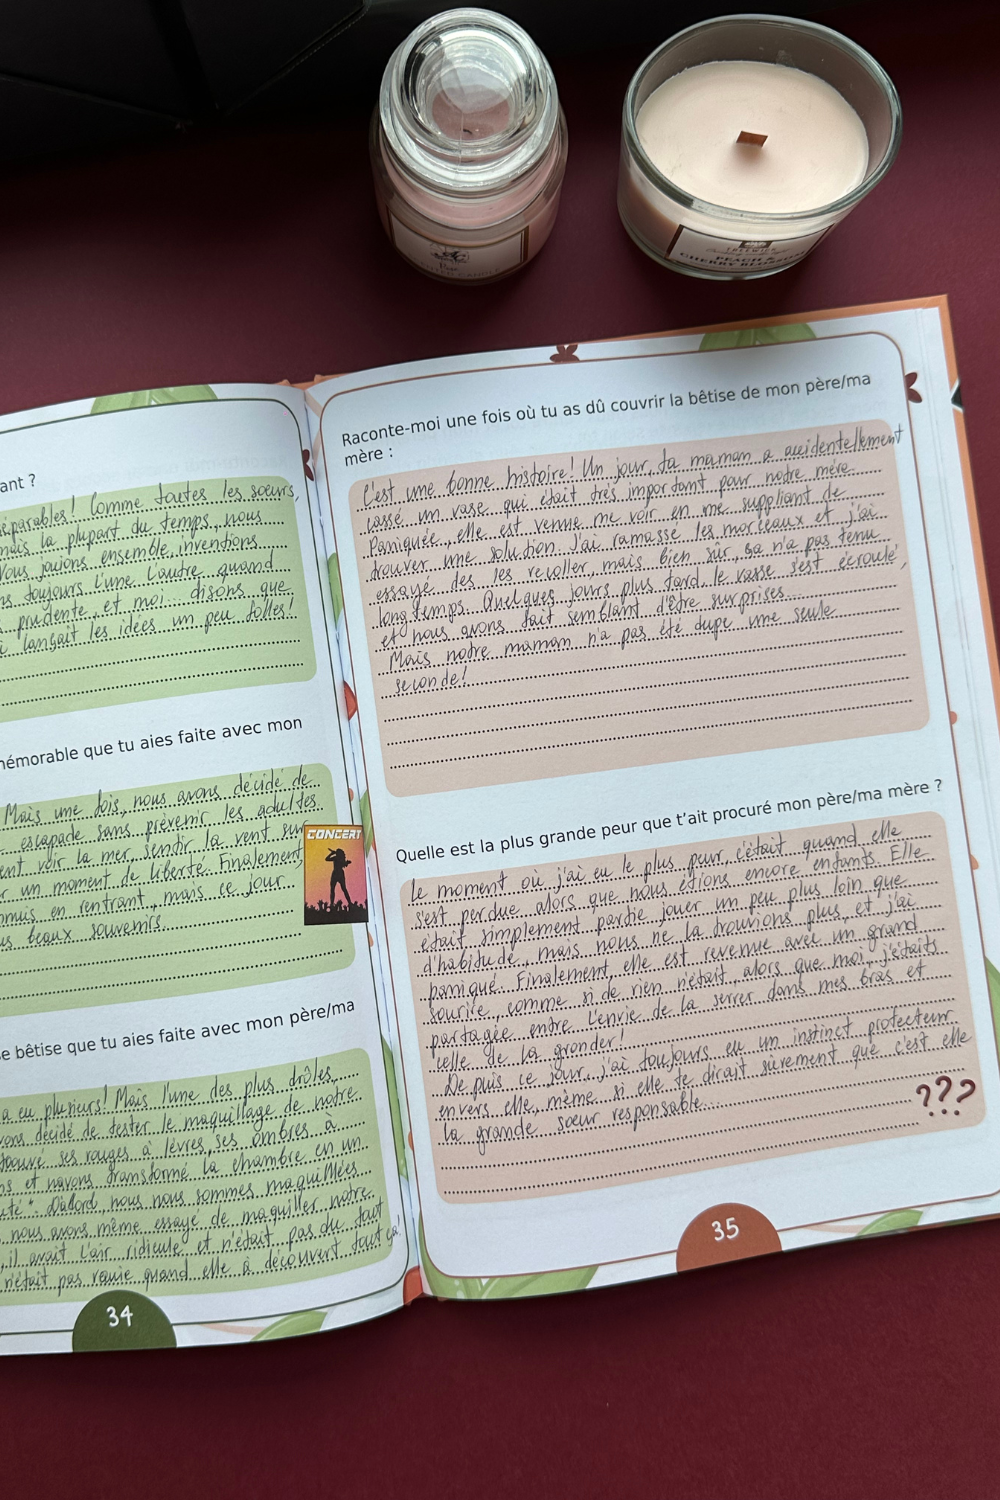 PEACH &
CHERRY BLOSSOM
ant ?
éparables! Comme toutes les sœurs,
mais la plupart du temps, nous
Nous jouions ensemble, inventions
ns toujours l'une l'autre, quand
prudente, et moi, disons que
i lançait les idées un peu folles!
némorable que tu aies faite avec mon
Mais une fois, nous avons décidé de
escapade sans prévenir les adultes.
ent voir la mer, sentir la vent sur
r un moment de liberté. Finalement,
nuis en rentrant, mais ce jour
us beaux souvenirs.
CONCERT
e bêtise que tu aies faite avec mon père/ma
a eu plusieurs! Mais l'une des plus drôles,
vons décidé de tester le maquillage de notre
trouvé ses rouges à lèvres, ses ombres à
ns et navons transformé la chambre en un
uté". D'abord, nous nous sommes maquillées
nous avons même essayé de maquiller notre
, il avait l'air ridicule et n'était pas du tout
n'était pas ravie quand elle a découvert tout ça!
34
Raconte-moi une fois où tu as dû couvrir la bêtise de mon père/ma
mère :
C'est une bonne histoire! Un jour, ta maman a accidentellement
cassé un vase qui était très important pour notre mère.
Paniquée, elle est venue me voir en me suppliant de
trouver une solution. J'ai ramassé les morceaux et j'ai
essayé des les recoller mais bien sûr, ça n'a pas tenu
longtemps. Quelques jours plus tard, le vasse s'est écroulé,
et nous avons fait semblant d'être surprises...
Mais notre maman n'a pas été dupe une seule
seconde!
Quelle est la plus grande peur que t'ait procuré mon père/ma mère ?
Le moment où j'ai eu le plus peur, c'était quand elle
s'est perdue alors que nous étions encore enfants. Elle
était simplement partie jouer un peu plus loin que
d'habitude, mais nous ne la trouvions plus, et j'ai
paniqué. Finalement, elle est revenue avec un grand
sourire, comme si de rien n'était, alors que moi, j'étaits
partagée entre l'envie de la serrer dans mes bras et
celle de la gronder!
Depuis ce jour, j'ai toujours eu un instinct protecteur
envers elle, même si elle te dirait sûrement que c'est elle
la grande sœur responsable...
???
35